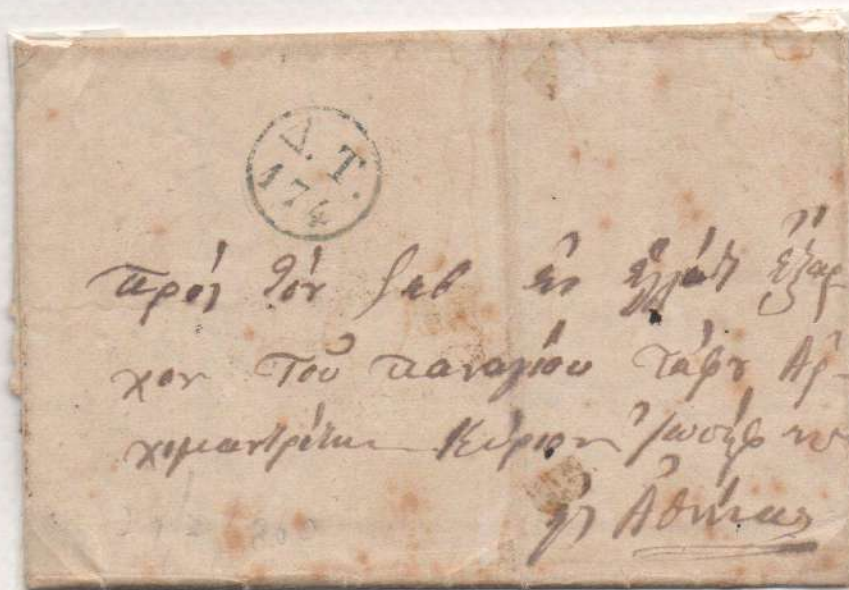 V. T.
174
πρός τόν Σεβ ἐν Ἑλλάδι ἔξαρ
χον τοῦ παναγίου τάφου Ἀρ-
χιμανδρίτην Κύριον Ἰωσήφ
εἰς Ἀθήνας